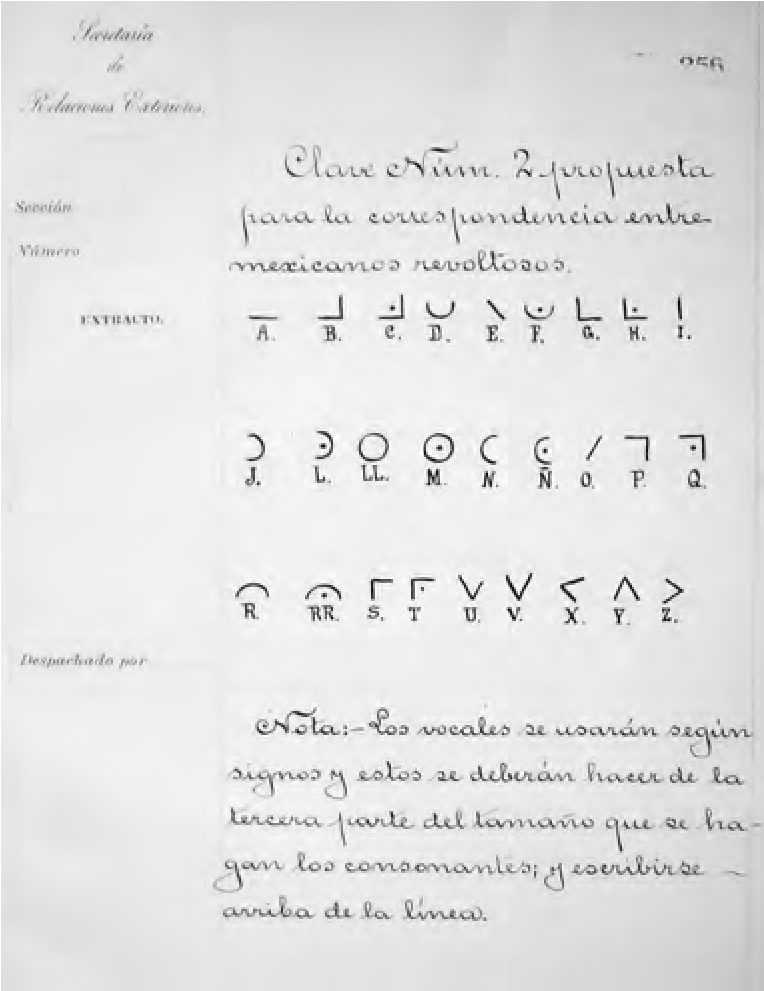 Secretaría
de
Relaciones Exteriores.
256
Clave Núm. 2 propuesta
para la correspondencia entre
mexicanos revoltosos.
Sección
Número
EXTRACTO.
A. B. C. D. E. F. G. H. I.
J. L. LL. M. N. Ñ. O. P. Q.
R. RR. S. T U. V. X. Y. Z.
Despachado por
Nota:- Los vocales se usarán según
signos y estos se deberán hacer de la
tercera parte del tamaño que se ha-
gan los consonantes; y escribirse
arriba de la línea.